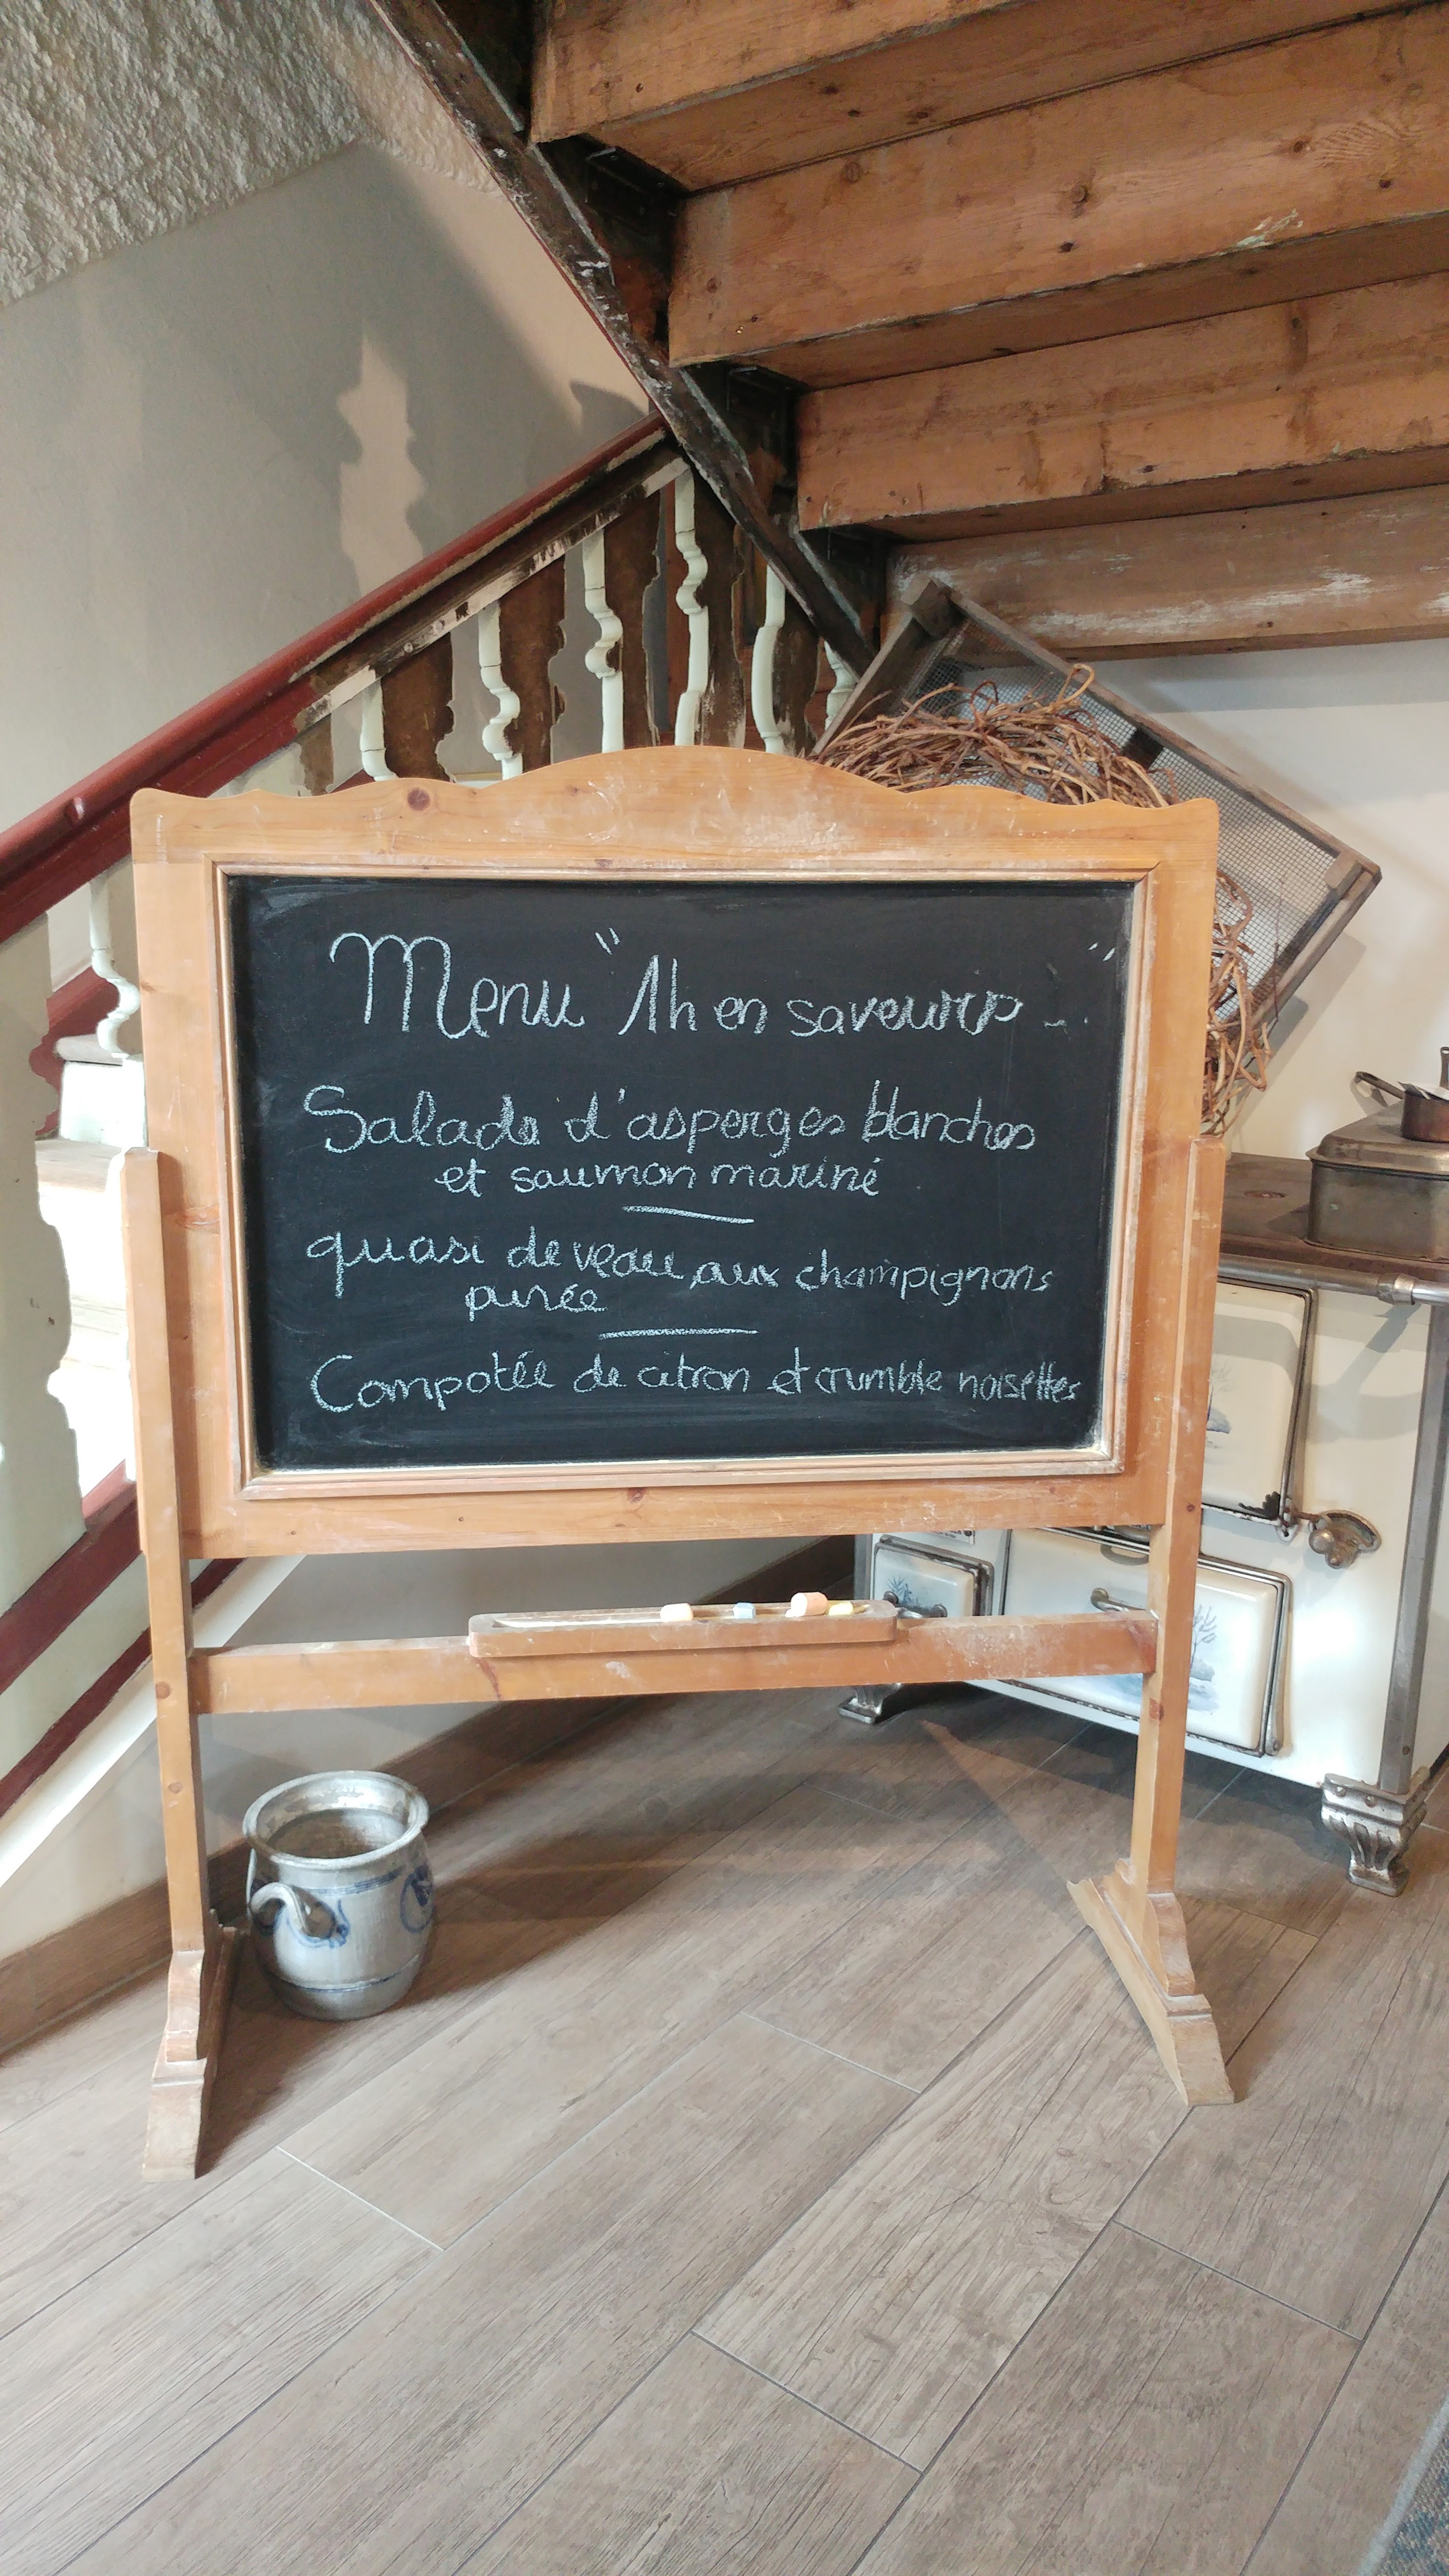 Menu "1h en saveurs..."
Salade d'asperges blanches
et saumon mariné
quasi de veau, aux champignons
purée
Compotée de citron et crumble noisettes